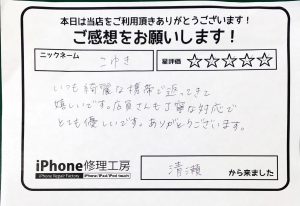 本日は当店をご利用頂きありがとうございます!
ご感想をお願いします!
ニックネーム
こゆき
星評価 ☆☆☆☆☆
いつも綺麗な携帯で返ってきて
嬉しいです。店員さんも丁寧な対応で
とても優しいです。ありがとうございます。
iPhone修理工房
iPhone Repair Factory
iPhone/iPad/iPod touch
清瀬
から来ました